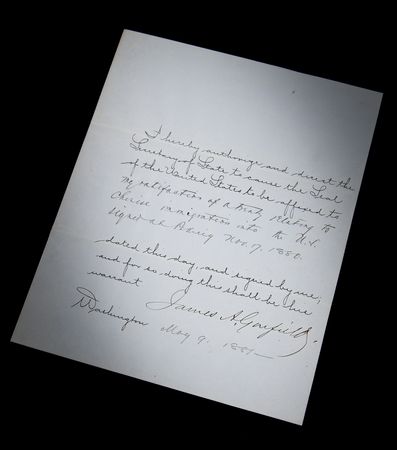 I hereby authorize and direct the
Secretary of State to cause the Seal
of the United States to be affixed to
my ratification of a treaty relating to
Chinese immigration into the U.S.
signed at Peking Nov. 17. 1880.
dated this day, and signed by me;
and for so doing this shall be his
warrant.
James A. Garfield.
Washington May 9. 1881—